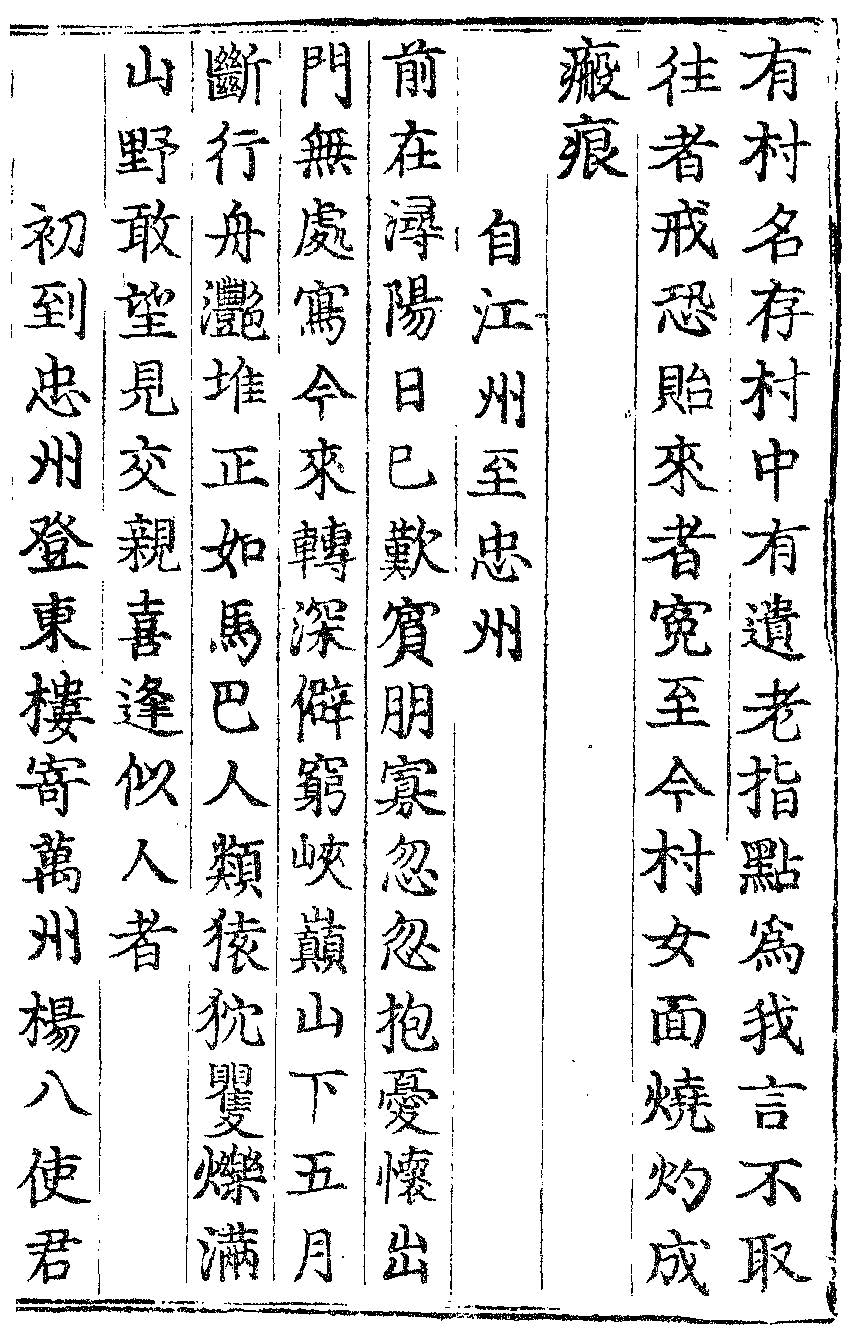 有村名存村中有遺老指點為我言不取
往者戒恐貽來者寃至今村女面燒灼成
瘢痕
自江州至忠州
前在潯陽日已歎賓朋寡忽忽抱憂懷出
門無處寫今來轉深僻窮峽巔山下五月
斷行舟灩堆正如馬巴人類猿狖矍爍滿
山野敢望見交親喜逢似人者
初到忠州登東樓寄萬州楊八使君